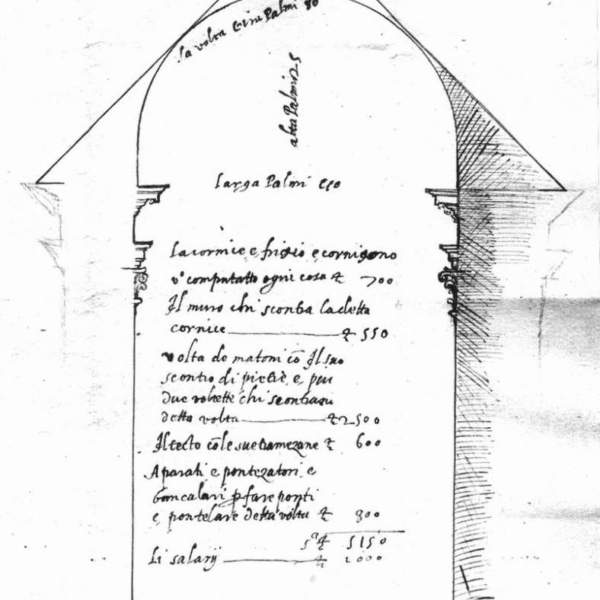 la volta Palmi 80
alta Palmi 25
larga Palmi
la cornice e frigio e cornigono
v'computatto ogni cosa 700
Il muro chi sconta la detta
cornice 550
volta de matoni cō Il suo
scontro di pietre e piu
due chi
detta volta 2500
Il tecto cō le sue tramezane 600
Aparati e pontezatori e
boncalari p fare ponti
e pontelare detta volta 800
5150
Li salarij 1000